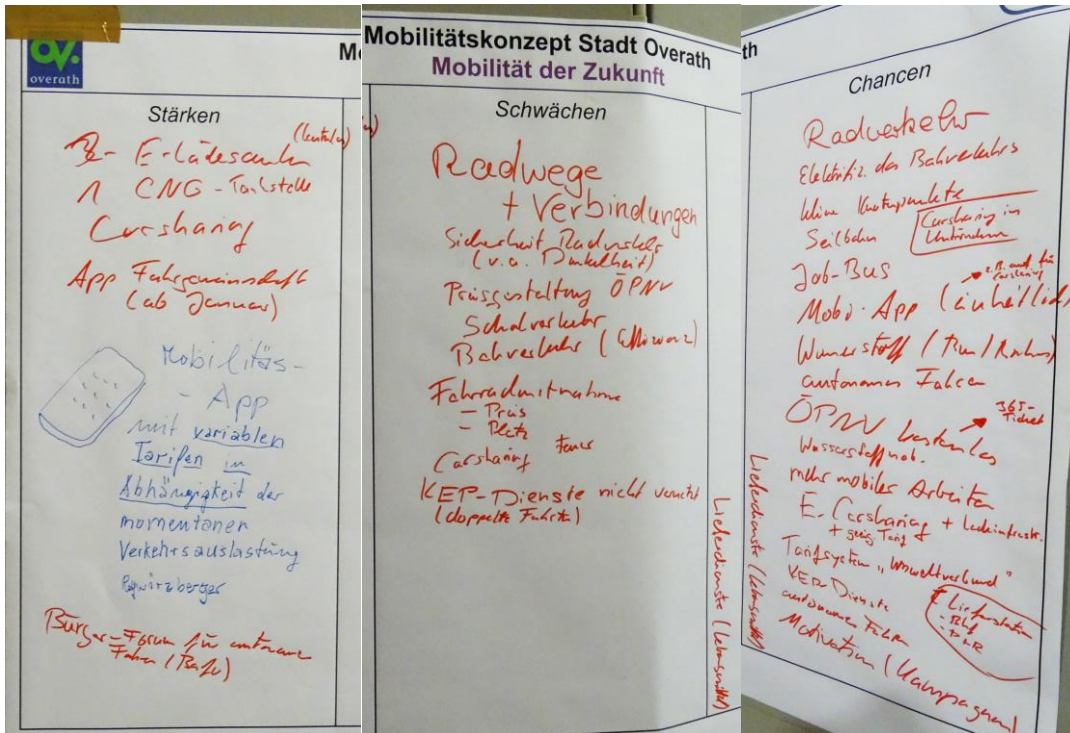 ov.
overath
M
Stärken
E-Ladesäulen
1 CNG-Tankstelle
Carsharing
App Fahrgemeinschaft
(ab Januar)
Mobilitäs-
- App
mit variablen
Tarifen in
Abhängigkeit der
momentanen
Verkehrsauslastung
Bürger-Forum für autonomes
Fahren (Bahn)
Mobilitätskonzept Stadt Overath
Mobilität der Zukunft
Schwächen
Radwege
+ Verbindungen
Sicherheit Radverkehr
(v.a. Dunkelheit)
Preisgestaltung ÖPNV
Schulverkehr
Bahnverkehr (Effizienz)
Fahrradmitnahme
- Preis
- Platz
Carsharing teuer
KEP-Dienste nicht vernetzt
(doppelte Fahrten)
Lieferdienste (Lebensmittel)
th
Chancen
Radverkehr
Elektrifiz. des Bahnverkehrs
kleine Knotenpunkte
Seilbahn
Carsharing in
Unternehmen
Job-Bus
z.B. auch für
Carsharing
Mobi-App (einheitlich)
Wasserstoff
autonomes Fahren
ÖPNV kostenlos
365-
Ticket
Wasserstoffmob.
mehr mobiles Arbeiten
E-Carsharing + Ladeinfrastr.
+ günstig. Tarif
Tarifsystem „Umweltverbund"
KEP Dienste
autonomes Fahren
Lieferstation
- Bhf
- P+R
Motivation (Kampagnen)
Lieferdienste (Lebensmittel)